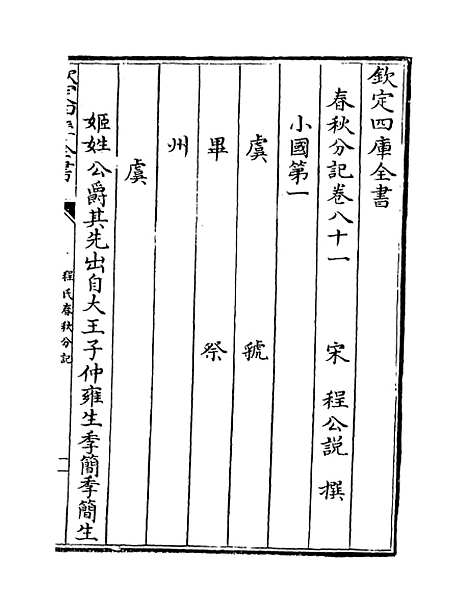 欽定四庫全書
春秋分記卷八十一 宋 程公說 撰
小國第一
虞 虢
畢 祭
州
虞
姬姓公爵其先出自大王子仲雍生季簡季簡生
程氏春秋分記